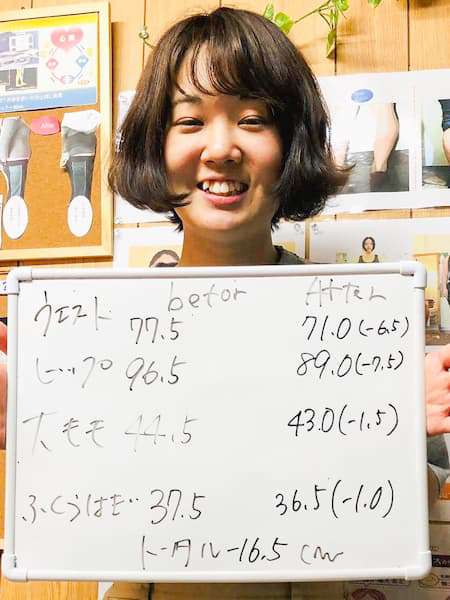 befor After
ウエスト 77.5 71.0(-6.5)
ヒップ 96.5 89.0(-7.5)
太モモ 44.5 43.0(-1.5)
ふくらはぎ 37.5 36.5(-1.0)
トータル-16.5cm